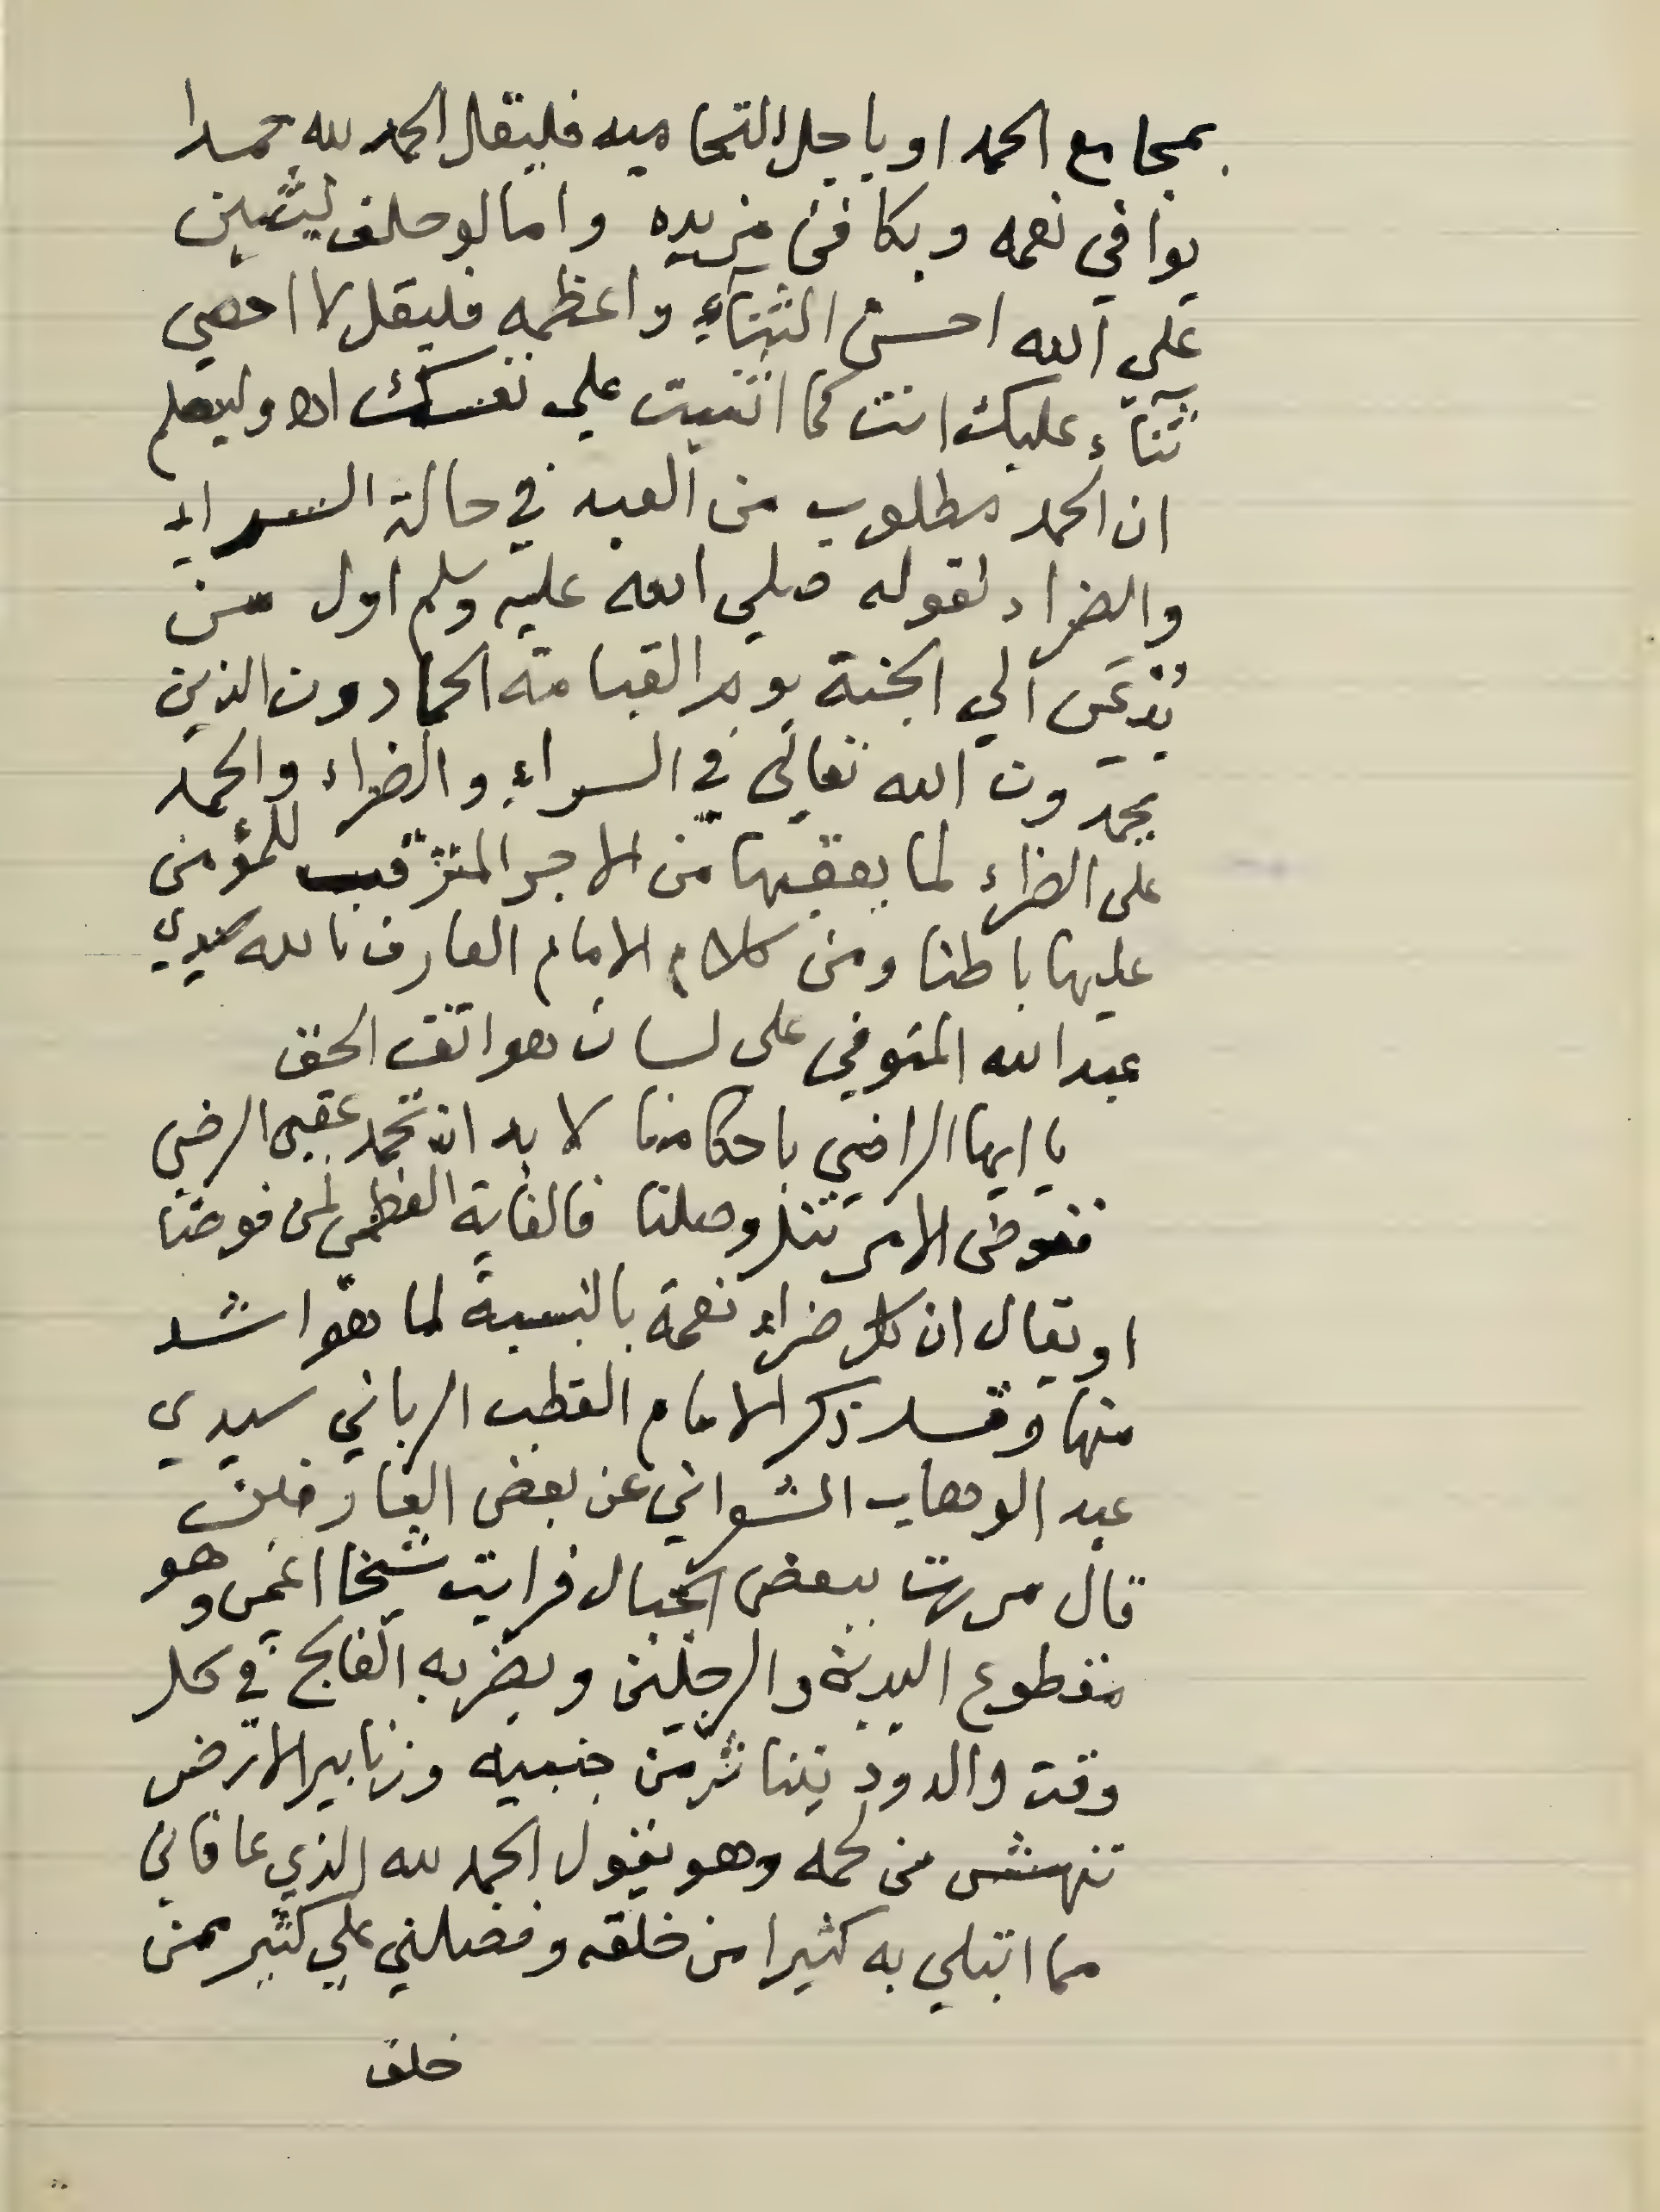 بمجامع الحمد او باجل التحاميد فليقل الحمد لله حمدا
يوافي نعمه ويكافئ مزيده واما لو حلف ليثنين
علي الله احسن الثناء واعظمه فليقل لا احصي
ثناء عليك انت كما اثنيت علي نفسك اه وليعلم
ان الحمد مطلوب من العبد في حالة السراء
والضراء لقوله صلي الله عليه وسلم اول من
يدعى الي الجنة يوم القيامة الحمادون الذين
يحمدون الله تعالى في السراء والضراء والحمد
على الضراء لما يعقبها من الاجر المترقب للمؤمن
عليها باطنا ومن كلام الامام العارف بالله سيدي
عبد الله المنوفي على لسان هواتف الحق
يا ايها الراضي باحكامنا لا بد ان تحمد عقبى الرضى
ففوض الامر تنل وصلنا فالغاية العظمى لمن فوضا
او يقال ان كل ضراء نعمة بالنسبة لما هو اشد
منها وقد ذكر الامام القطب الرباني سيدي
عبد الوهاب الشعراني عن بعض العارفين
قال مررت ببعض الجبال فرايت شيخا اعمى وهو
مقطوع اليدين والرجلين ويضربه الفالج في كل
وقت والدود يتناثر من جنبيه وزنابير الارض
تنهش من لحمه وهو يقول الحمد لله الذي عافاني
مما ابتلي به كثيرا من خلقه وفضلني علي كثير ممن
خلق